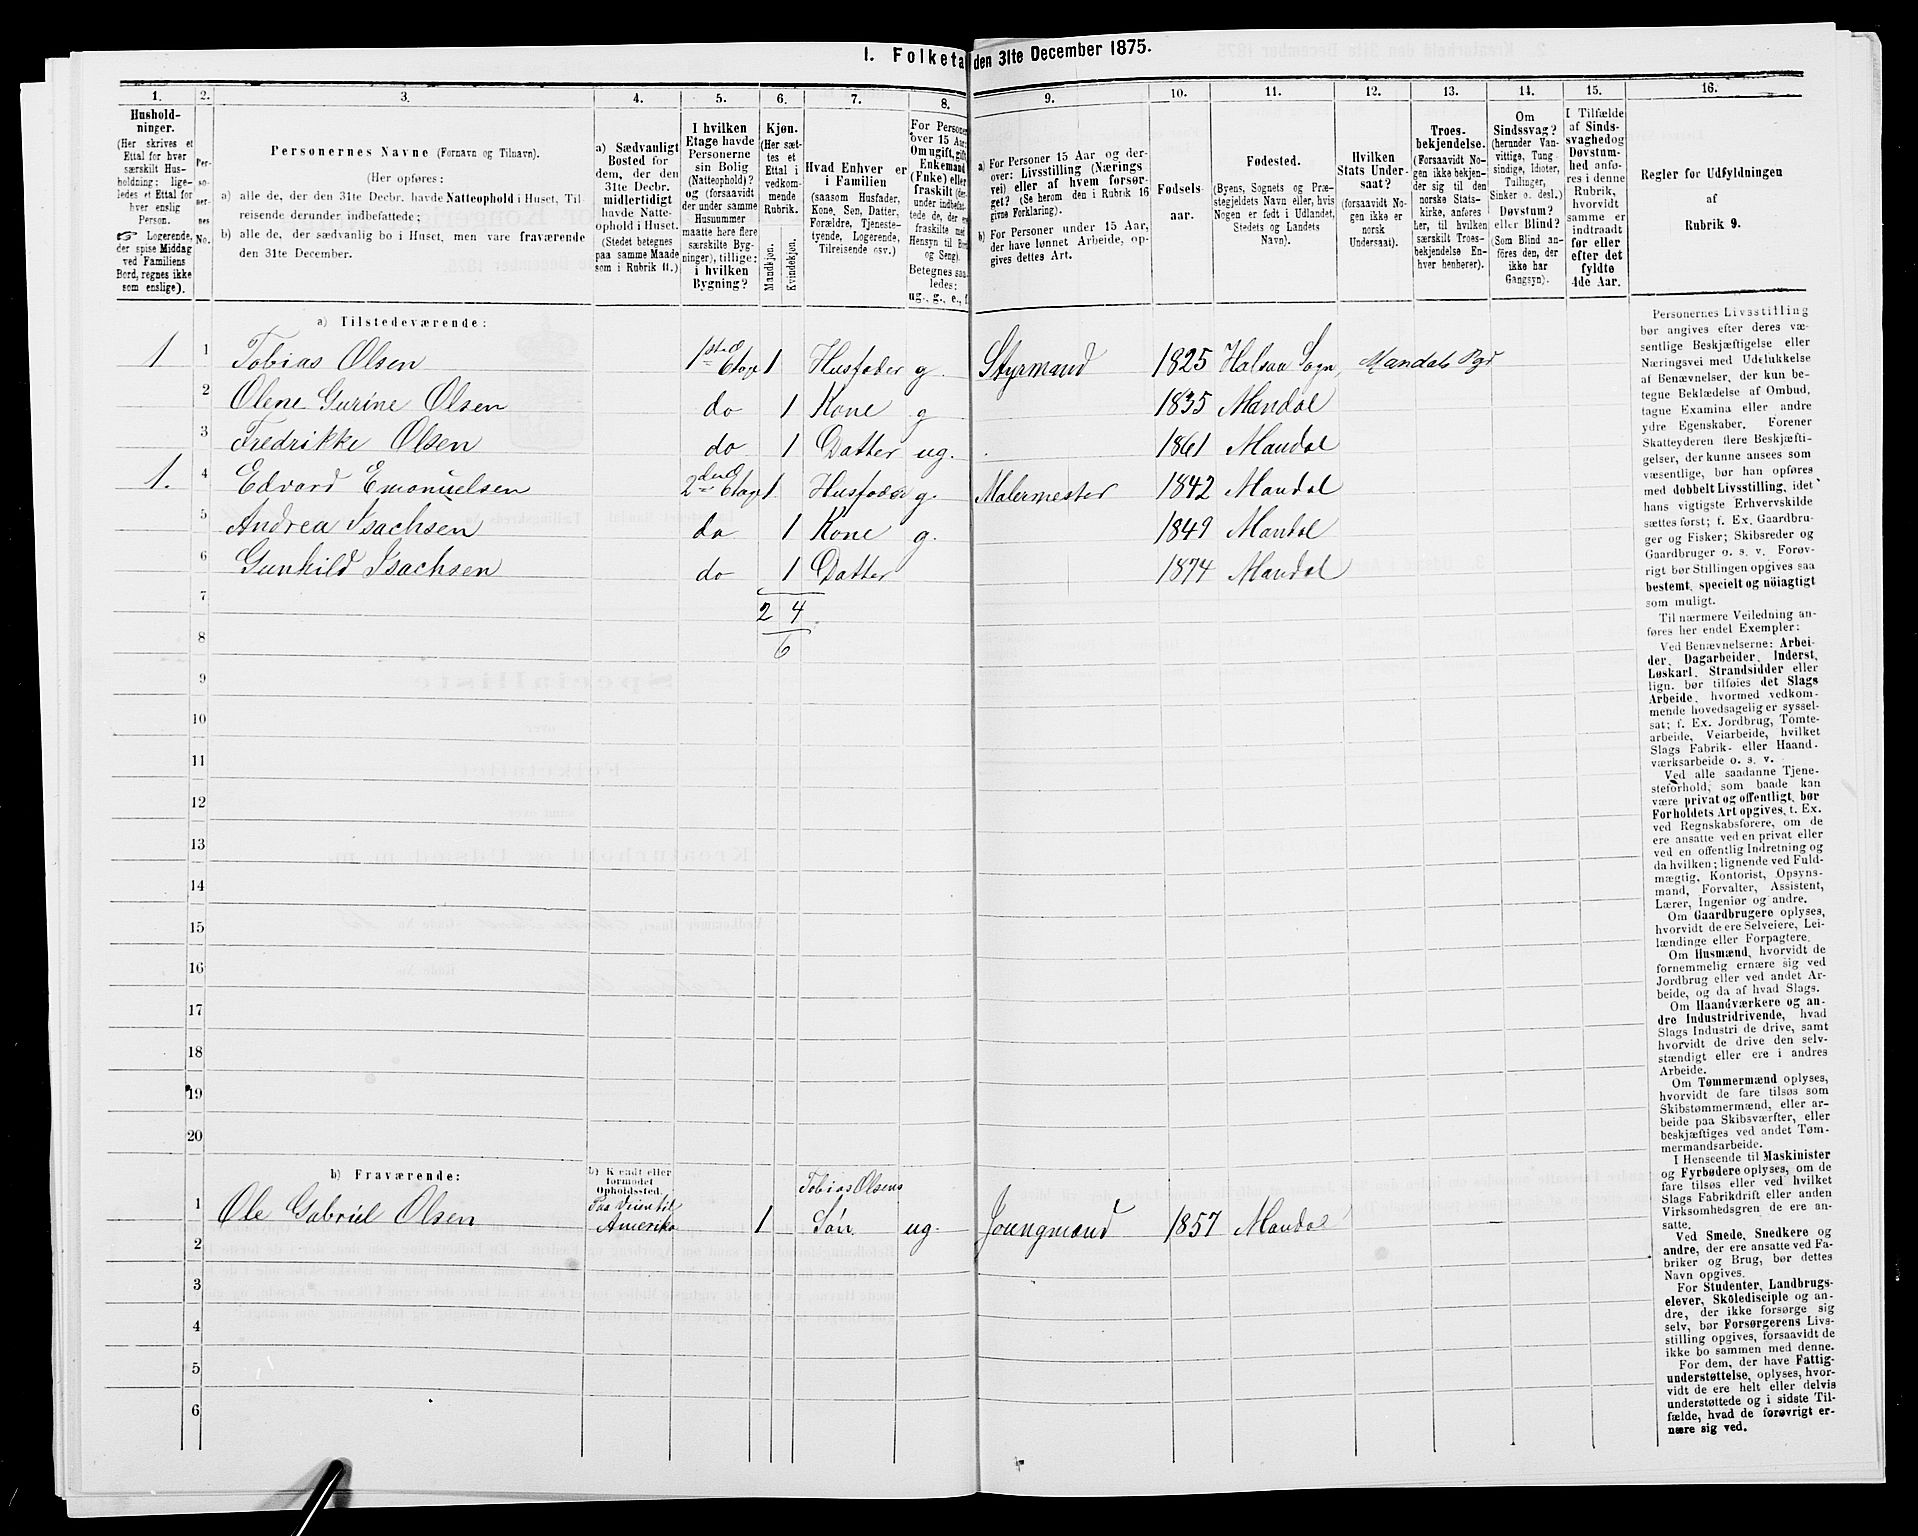 1. Folketa den 31te December 1875.
1. 2. 3. 4. 5. 6. 7. 8. 9. 10. 11. 12. 13. 14. 15. 16.
Hushold-
ninger.
(Her skrives et
Ettal for hver
særskilt Hus-
holdning: lige-
ledes et Ettal for
hver enslig
Person.
Logerende,
der spise Middag
ved Familiens
Bord, regnes ikke
som enslige).
Per-
so-
ner-
nes
No.
Personernes Navne (Fornavn og Tilnavn).
(Her opføres:
a) alle de, der den 31te Decbr. havde Natteophold i Huset, Til-
reisende derunder indbefattede;
b) alle de, der sædvanlig bo i Huset, men vare fraværende
den 31te December.
a) Sædvanligt
Bosted for
dem, der den
31te Decbr.
midlertidigt
havde Natte-
ophold i Huset.
(Stedet betegnes
paa samme Maade
som i Rubrik 11.)
I hvilken
Etage havde
Personerne
sin Bolig
(Natteophold)?
og (forsaavidt
der under samme
Husnummer
maatte høre flere
særskilte Byg-
ninger), tillige:
i hvilken
Bygning?
Kjøn.
(Her sæt-
tes et
Ettal i
vedkom-
mende
Rubrik.
Mandkjøn.
Kvindekjøn.
Hvad Enhver er
i Familien
(saasom Husfader,
Kone, Søn, Datter,
Forældre, Tjeneste-
tyende, Logerende,
Tilreisende osv.)
For Personer
over 15 Aar:
Om ugift, gift,
Enkemand
(Enke) eller
fraskilt (de
Hensyn til Bord
og Seng).
Betegnes saa-
ledes:
ug., g., e., f.
a) For Personer 15 Aar og der-
over: Livsstilling (Nærings-
vei) eller af hvem forsør-
get? (Se herom den i Rubrik 16
givne Forklaring).
b) For Personer under 15 Aar,
der have lønnet Arbeide, op-
gives dettes Art.
Fødsels-
aar.
Fødested.
(Byens, Sognets og Præ-
stegjeldets Navn eller, hvis
Nogen er født i Udlandet,
Stedets og Landets
Navn).
Hvilken
Stats Under-
saat?
(forsaavidt No-
gen ikke er
norsk
Undersaat).
Troes-
bekjendelse.
(Forsaavidt No-
gen ikke bekjen-
der sig til den
norske Stats-
kirke, anføres
her, til hvilken
særskilt Troes-
bekjendelse En-
hver henhører).
Om
Sindssvag?
(herunder Van-
vittige, Tung-
sindige, Idioter,
Tallinger,
Sinker o. desl.)
Døvstum?
eller Blind?
(Som Blind an-
føres den, der
ikke har
Gangsyn).
I Tilfælde
af Sinds-
svaghed og
Døvstum-
hed anfø-
res i denne
Rubrik,
hvorvidt
samme er
indtraadt
før eller
efter det
fyldte
4de Aar.
Regler for Udfyldningen
af
Rubrik 9.
a) Tilstedeværende:
1 1 Tobias Olsen 1ste Etage 1 Husfader g. Styrmand 1825 Halsaa Sogn, Mandals Pgd
2 Olene Gurine Olsen do 1 Kone g 1835 Mandal
3 Fredrikke Olsen do 1 Datter ug. 1861 Mandal
1. 4 Edvard Emanuelsen 2den Etage 1 Husfader g. Malermester 1842 Mandal
5 Andrea Isachsen do 1 Kone g. 1849 Mandal
6 Gunhild Isachsen do 1 Datter 1874 Mandal
7 2 4
8 6
9
10
11
12
13
14
15
16
17
18
19
20
b) Fraværende:
b) Kjendt eller
formodet
Opholdssted.
1 Ole Gabriel Olsen Paa Veien til Amerika 1 Tobias Olsens Søn ug. Joungmand 1857 Mandal
2
3
4
5
6
Personernes Livsstilling
bør angives efter deres væ-
sentlige Beskjæftigelse eller
Næringsvei med Udelukkelse
af Benævnelser, der kun be-
tegne Beklædelse af Ombud,
tagne Examina eller andre
ydre Egenskaber. Forener
Skatteyderen flere Beskjæfti-
gelser, der kunne ansees som
væsentlige, bør han opføres
med dobbelt Livsstilling, idet
hans vigtigste Erhvervskilde
sættes først; f. Ex. Gaardbru-
ger og Fisker; Skibsreder og
Gaardbruger o. s. v. Forøv-
rigt bør Stillingen opgives saa
bestemt, specielt og nöiagtigt
som muligt.
Til nærmere Veiledning an-
føres her endel Exempler:
Ved Benævnelserne: Arbei-
der, Dagarbeider, Inderst,
Løskarl, Strandsidder eller
lign. bør tilføies det Slags
Arbeide, hvormed vedkom-
mende hovedsagelig er syssel-
sat; f. Ex. Jordbrug, Tomte-
arbeide, Veiarbeide, hvilket
Slags Fabrik- eller Haand-
værksarbeide o. s. v.
Ved alle saadanne Tjene-
steforhold, som baade kan
være privat og offentligt, bør
Forholdets Art opgives, t. Ex.
ved Regnskabsførere, om de
ere ansatte ved en privat eller
ved en offentlig Indretning og
da hvilken; lignende ved Fuld-
mægtig, Kontorist, Opsyns-
mand, Forvalter, Assistent,
Lærer, Ingeniør og andre.
Om Gaardbrugere oplyses,
hvorvidt de ere Selveiere, Lei-
lændinge eller Forpagtere.
Om Husmænd, hvorvidt de
fornemmelig ernære sig ved
Jordbrug eller ved andet Ar-
beide, og da af hvad Slags.
Om Haandværkere og an-
dre Industridrivende, hvad
Slags Industri de drive, samt
hvorvidt de drive den selv-
stændigt eller ere i andres
Arbeide.
Om Tømmermænd oplyses,
hvorvidt de fare tilsøs som
Skibstømmermænd, eller ar-
beide paa Skibsværfter, eller
beskjæftiges ved andet Tøm-
mermandsarbeide.
I Henseende til Maskinister
og Fyrbødere oplyses, om de
fare tilsøs eller ved hvilket
Slags Fabrikdrift eller anden
Virksomhedsgren de ere an-
satte.
Ved Smede, Snedkere og
andre, der ere ansatte ved Fa-
briker og Brug, bør dettes
Navn opgives.
For Studenter, Landbrugs-
elever, Skoledisciple og an-
dre, der ikke forsørge sig
selv, bør Forsørgerens Livs-
stilling opgives, forsaavidt de
ikke bo sammen med denne.
For dem, der have Fattig-
understøttelse, oplyses, hvor-
vidt de ere helt eller delvis
understøttede og i sidste Til-
fælde, hvad de forøvrigt er-
nære sig ved.